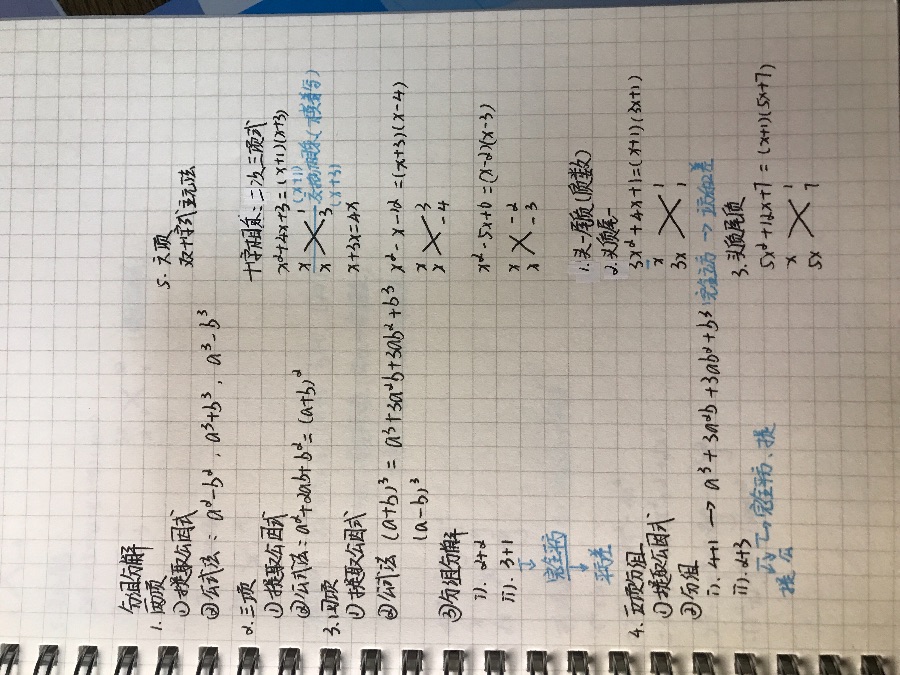 分组分解
1. 两项
① 提取公因式
② 公式法: a²-b², a³+b³, a³-b³
2. 三项
① 提取公因式
② 公式法: a²+2ab+b²=(a+b)²
3. 四项
① 提取公因式
② 公式法 (a+b)³ = a³+3a²b+3ab²+b³
(a-b)³
③ 分组分解
i). 2+2
ii). 3+1
↓
完全平方
↓
平方差
4. 五项分组
① 提取公因式
② 分组
i). 4+1 → a³+3a²b+3ab²+b³ 完全立方 → 立方和差
ii). 2+3
↓ ↳ 完全平方、提
提公
5. 六项
双十字 主元法
十字相乘: 二次三项式
x²+4x+3=(x+1)(x+3)
x 1 (x+1)
交叉相乘(横着写)
x 3 (x+3)
x+3x=4x
x²-x-12=(x+3)(x-4)
x 3
x -4
x²-5x+6=(x-2)(x-3)
x -2
x -3
1. 头一尾质(质数)
2. 头质尾一
3x²+4x+1=(x+1)(3x+1)
x 1
3x 1
3. 头质尾质
5x²+12x+7=(x+1)(5x+7)
x 1
5x 7